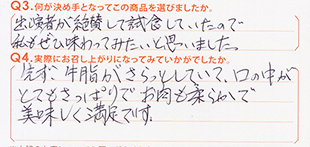 Q3.何が決め手となってこの商品を選びましたか。
出演者が絶賛して試食していたので
私もぜひ味わってみたいと思いました。
Q4.実際にお召し上がりになってみていかがでしたか。
先ず、牛脂がさらっとしていて、口の中が
とてもさっぱりでお肉も柔らかで
美味しく満足です。